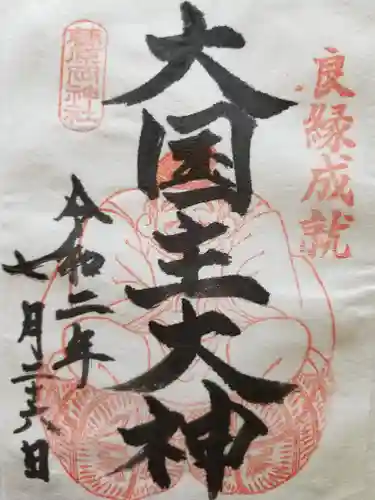 良縁成就
大国主大神
令和二年
七月二十六日